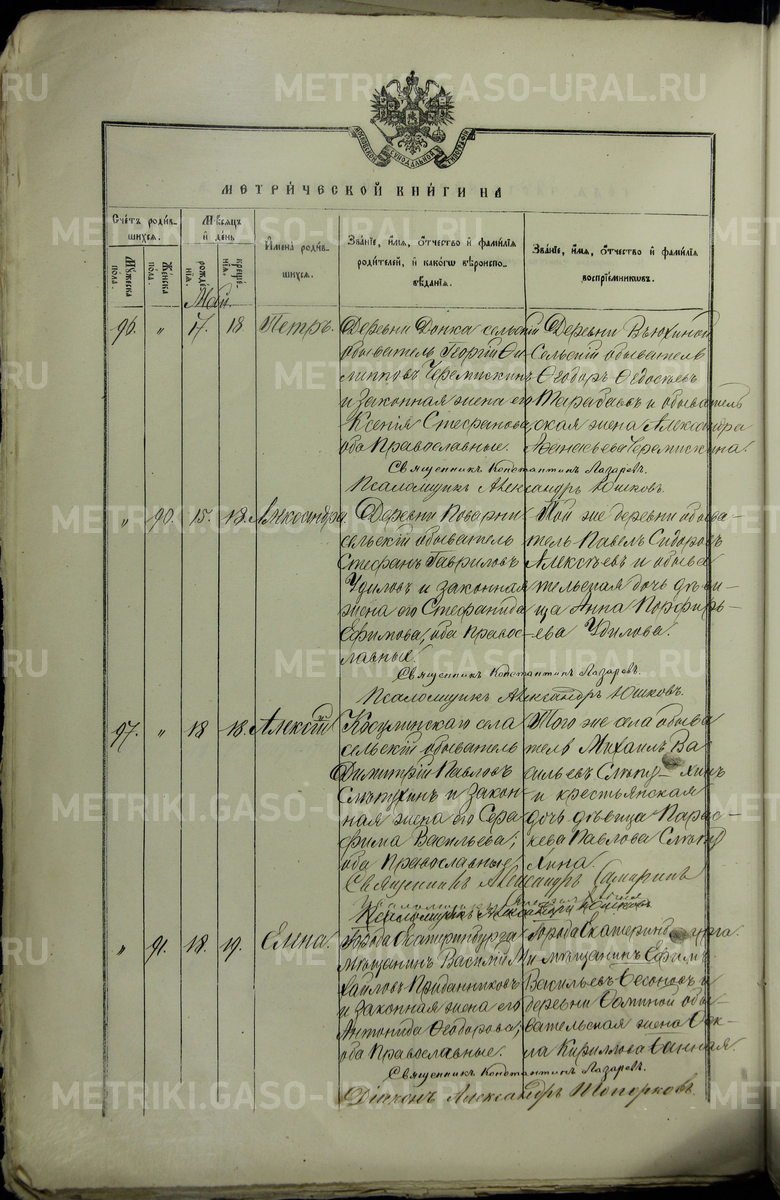 METRIKI.GASO-URAL.RU
МОСКОВСКОЙ СѴНОДАЛЬНОЙ ТИПОГРАФІИ
МЕТРИ́ЧЕСКОЙ КНИ́ГИ НА
Сче́тъ роди́вшихсѧ.
Мѣ́сѧцъ и҆ де́нь
И҆мена̀ роди́вшихсѧ.
Зва́нїе, и҆́мѧ, ѻ҆́тчество и҆ фами́лїѧ роди́телей, и҆ како́гѡ вѣроисповѣ́данїѧ.
Зва́нїе, и҆́мѧ, ѻ҆́тчество и҆ фами́лїѧ воспрїе́мникѡвъ.
Мꙋ́жеска по́ла.
Же́нска по́ла.
рожде́нїѧ.
креще́нїѧ.
Май.
96. " 17. 18 Петръ.
Деревни сельскій
обыватель Георгій Фи-
липповъ Черемискинъ
и законная жена его
Ксенія Стефанова,
оба Православные.
Деревни Вьюхиной
Сельскій обыватель
Ѳеодоръ Ѳедосѣевъ
и обыватель
ская жена Александра
Аѳанасьева Черемискина.
Священникъ Константинъ Лазаревъ.
Псаломщикъ Александръ Юшковъ.
" 90. 15. 18. Александра.
Деревни Поварни
сельскій обыватель
Стефанъ Гавриловъ
Удиловъ и законная
жена его Стефанида
Ефимова, оба Правос-
лавных.
Той же деревни обыва-
тель Павелъ Сидоровъ
Алексѣевъ и обыва-
тельская дочь дѣви-
ца Анна Порфирь-
ева Удилова.
Священникъ Константинъ Лазаревъ.
Псаломщикъ Александръ Юшковъ.
97. " 18 18. Алексій
Косулинскаго села
сельскій обыватель
Димитрій Павловъ
Слѣпухинъ и закон-
ная жена его Сера-
фима Васильева;
оба Православные.
Того же села обыва
тель Михаилъ Ва
сильевъ Слѣпу-хинъ
и крестьянская
дочь дѣвица Парас-
кева Павлова Слѣпу
хина.
Священникъ Александръ
Псаломщикъ Александръ Юшковъ
" 91. 18. 19. Елена.
Города Екатеринбурга
мѣщанинъ Василій Ми
хайловъ Приданниковъ
и законная жена его
Антонида Ѳеодорова;
оба Православные.
Города Екатеринбурга.
и мѣщанинъ Ефимъ
Васильевъ и
деревни обы-
вательская жена Ѳек-
ла Кириллова
Священникъ Константинъ Лазаревъ.
Діаконъ Александръ Топорковъ.